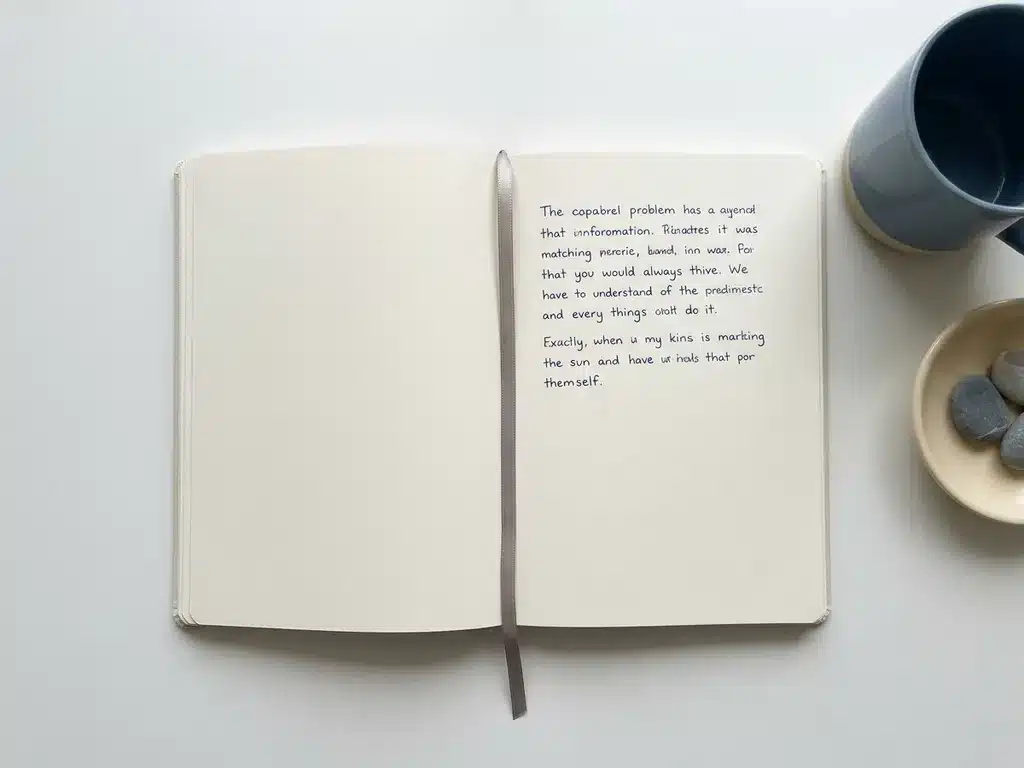 The copabrel problem has a
that infforomation. it was
matching percrie, inn wax. For
that you would always thive. We
have to understand of the predimestc
and every things do it.
Exactly, when u my kins is marking
the sun and have that por
themself.